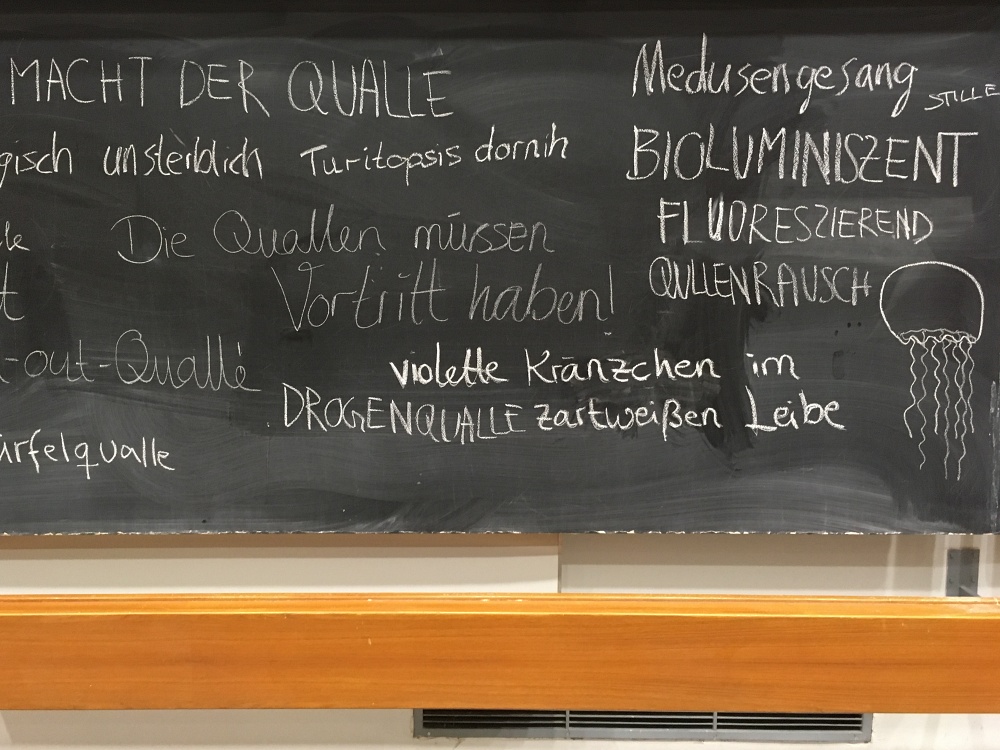 MACHT DER QUALLE
gisch unsterblich Turitopsis dornih
Die Quallen müssen
Vortritt haben!
t
-out-Qualle
ürfelqualle
violette Kränzchen im
DROGENQUALLE zartweißen Leibe
Medusengesang STILLE
BIOLUMINISZENT
FLUORESZIEREND
QULLENRAUSCH